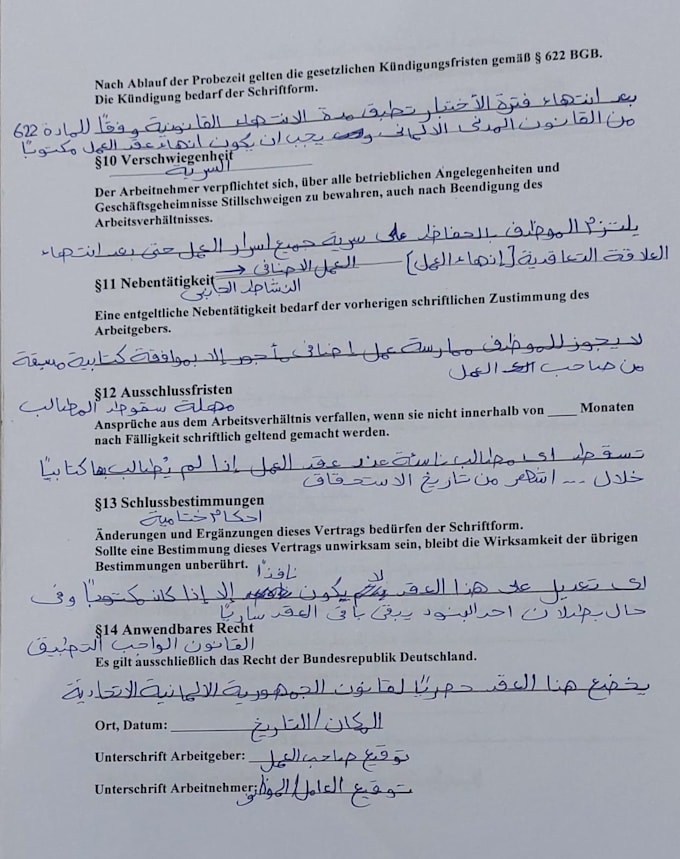 Nach Ablauf der Probezeit gelten die gesetzlichen Kündigungsfristen gemäß § 622 BGB.
Die Kündigung bedarf der Schriftform.
بعد انتهاء فترة الأختبار تطبق مدة الانتهاء القانونية وفقًا للمادة 622
من القانون المدني الالماني ويجب ان يكون انهاء عقد العمل مكتوبًا
§10 Verschwiegenheit
السرية
Der Arbeitnehmer verpflichtet sich, über alle betrieblichen Angelegenheiten und
Geschäftsgeheimnisse Stillschweigen zu bewahren, auch nach Beendigung des
Arbeitsverhältnisses.
يلتزم الموظف بالحفاظ على سرية جميع اسرار العمل حتى بعد انتهاء
العلاقة التعاقدية [إنهاء العمل]
§11 Nebentätigkeit → العمل الاضافى
النشاط الجانبى
Eine entgeltliche Nebentätigkeit bedarf der vorherigen schriftlichen Zustimmung des
Arbeitgebers.
لا يجوز للموظف ممارسة عمل اضافى مأجور إلا بموافقة كتابية مسبقة
من صاحب العمل
§12 Ausschlussfristen
مهلة سقوط المطالب
Ansprüche aus dem Arbeitsverhältnis verfallen, wenn sie nicht innerhalb von ____ Monaten
nach Fälligkeit schriftlich geltend gemacht werden.
تسقط اى مطالب ناشئة عند عقد العمل إذا لم يُطالب بها كتابيًا
خلال ... اشهر من تاريخ الاستحقاق
§13 Schlussbestimmungen
احكام ختامية
Änderungen und Ergänzungen dieses Vertrags bedürfen der Schriftform.
Sollte eine Bestimmung dieses Vertrags unwirksam sein, bleibt die Wirksamkeit der übrigen
Bestimmungen unberührt.
اى تعديل على هذا العقد لا يكون نافذًا إلا إذا كان مكتوبًا وفى
حال بطلان احد البنود يبقى باقى العقد ساريًا
§14 Anwendbares Recht
القانون الواجب التطبيق
Es gilt ausschließlich das Recht der Bundesrepublik Deutschland.
يخضع هذا العقد حصريًا لقانون الجمهورية الالمانية الاتحادية
Ort, Datum: المكان/التاريخ
Unterschrift Arbeitgeber: توقيع صاحب العمل
Unterschrift Arbeitnehmer: توقيع العامل/الموظف